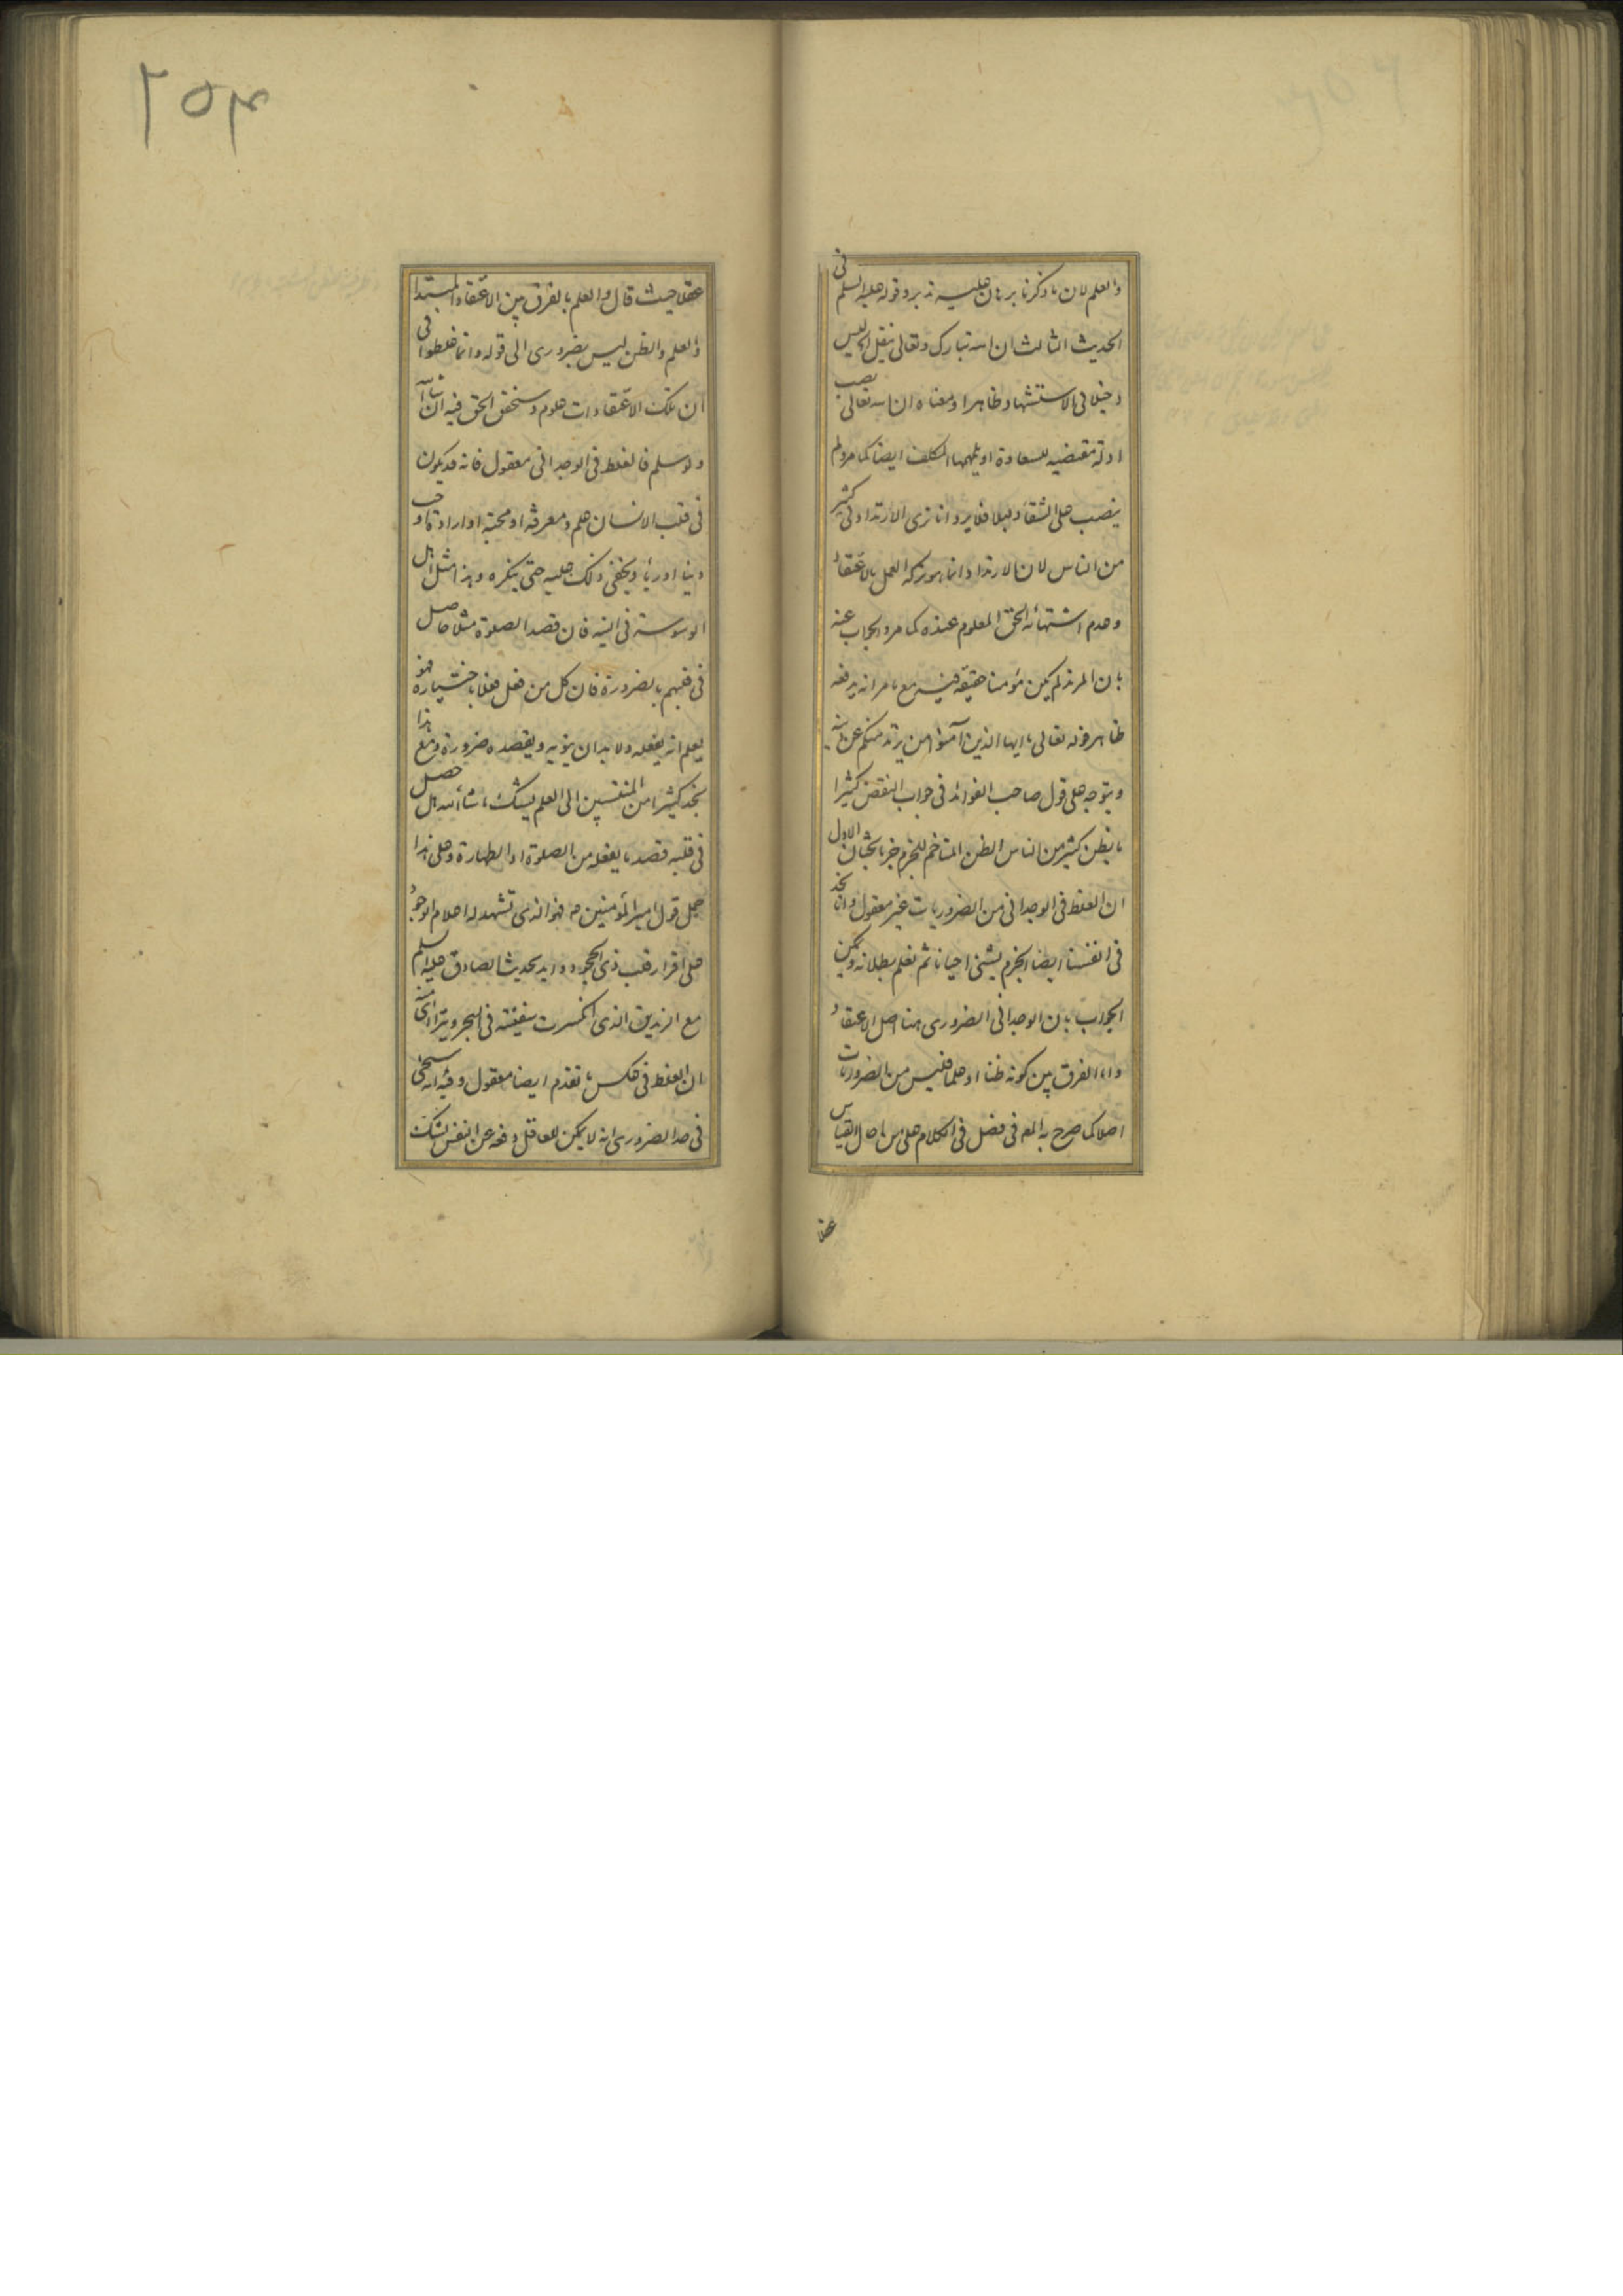 والعلم لان ما ذكرنا برهان عليه تدبر وقوله عليه السلم فى
الحديث الثالث ان الله تبارك وتعالى ينقل ليس
دخيلا فى الاستشهاد ظاهرا ومعناه ان الله تعالى نصب
ادلة مقتضيه للسعادة او يلهمها المكلف ايضا كما مر ولم
ينصب على الشقاء دليلا فلا يرد انا نرى الارتداد فى كثير
من الناس لان الارتداد انما هو تركه العمل بالاعتقاد
وعدم اشتهائه الحق المعلوم عنده كما مر والجواب عنه
بان المرتد لم يكن مؤمنا حقيقة فيه مع ما مر انه يدفعه
ظاهر قوله تعالى يا ايها الذين آمنوا من يرتد منكم عن دينه
ويتوجه على قول صاحب الفوائد فى جواب النقض كثيرا
ما يظن كثير من الناس الظن المتاخم للجزم جزما بحثان الاول
ان الغلط فى الوجدانى من الضروريات غير معقول وانا نجد
فى انفسنا ايضا الجزم بشئ احيانا ثم نعلم بطلانه ويمكن
الجواب بان الوجدانى الضرورى هنا اصل الاعتقاد
واما الفرق بين كونه ظنا او علما فليس من الضروريات
اصلا كما صرح به المص فى فصل فى الكلام على من احال القياس
عقلا
٢٥٤
عقلا حيث قال والعلم بالفرق بين الاعتقاد المبتدا
والعلم والظن ليس بضرورى الى قوله وانما غلطوا فى
ان تلك الاعتقادات علوم وسنحقق الحق فيه ان شاء الله
ولو سلم فالغلط فى الوجدانى معقول فانه قد يكون
فى قلب الانسان علم ومعرفة او محبة او ارادة او حب
دنيا او رياء ويخفى ذلك عليه حتى ينكره وهذا مثل اهل
الوسوسة فى النية فان قصد الصلوة مثلا حاصل
فى قلبهم بالضرورة فان كل من فعل فعلا باختياره فهو
يعلم انه يفعله ولا بد ان ينويه ويقصده ضرورة ومع هذا
نجد كثيرا من المنتسبين الى العلم يشك ما شاء الله هل حصل
فى قلبه قصد ما يفعله من الصلوة او الطهارة وعلى هذا
حمل قول امير المؤمنين ع فهو الذى تشهد له اعلام الوجود
على اقرار قلب ذى الجحود وايد بحديث الصادق عليه السلم
مع الزنديق الذى انكسرت سفينته فى البحر ويتراءى منه
ان الغلط فى عكس ما تقدم ايضا معقول وفيه انه سيجئ
فى حد الضرورى انه لا يمكن للعاقل دفعه عن النفس بشك